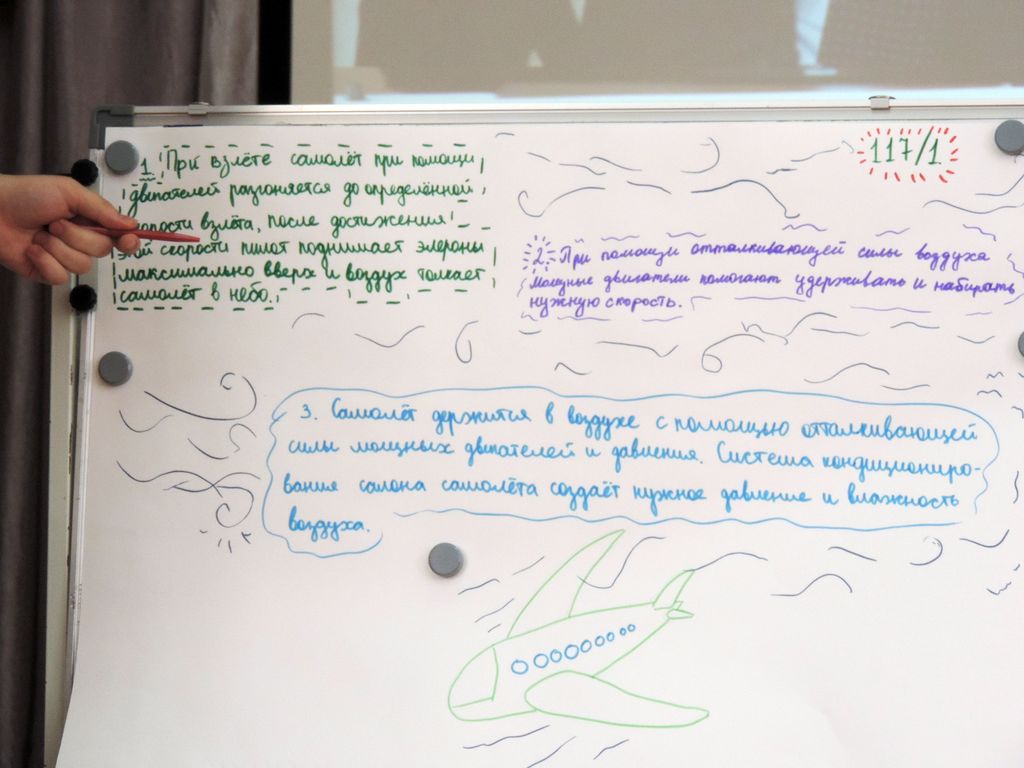 1. При взлёте самолёт при помощи
двигателей разгоняется до определённой
скорости взлёта, после достижения
этой скорости пилот поднимает элероны
максимально вверх и воздух толкает
самолёт в небо.
117/1
2. При помощи отталкивающей силы воздуха
мощные двигатели помогают удерживать и набирать
нужную скорость.
3. Самолёт держится в воздухе с помощью отталкивающей
силы мощных двигателей и давления. Система кондициониро-
вания салона самолёта создаёт нужное давление и влажность
воздуха.